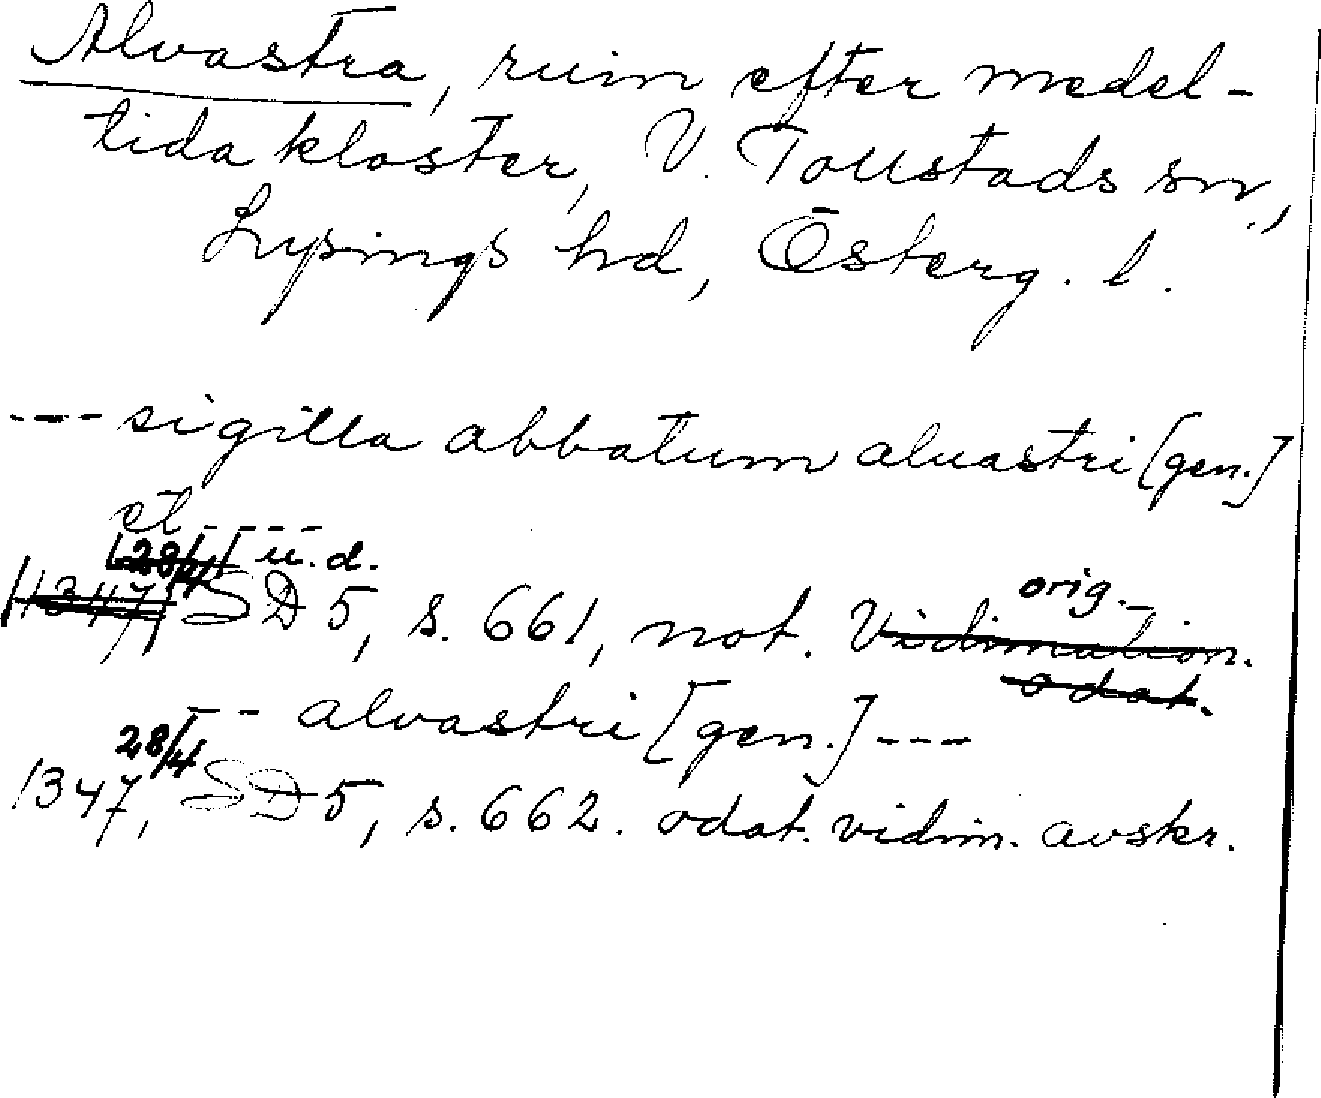 Alvastra, ruin efter medel-
tida kloster, V. Tollstads sn,
Lysings hd, Österg. l.
--- sigilla abbatum aluastri [gen.]
et -----
[28/4] u.d.
[1347] SD 5, s. 661, not. orig.
Vidimation.
odat.
-- alvastri [gen.] ---
28/4
1347, SD 5, s. 662. odat. vidim. avskr.